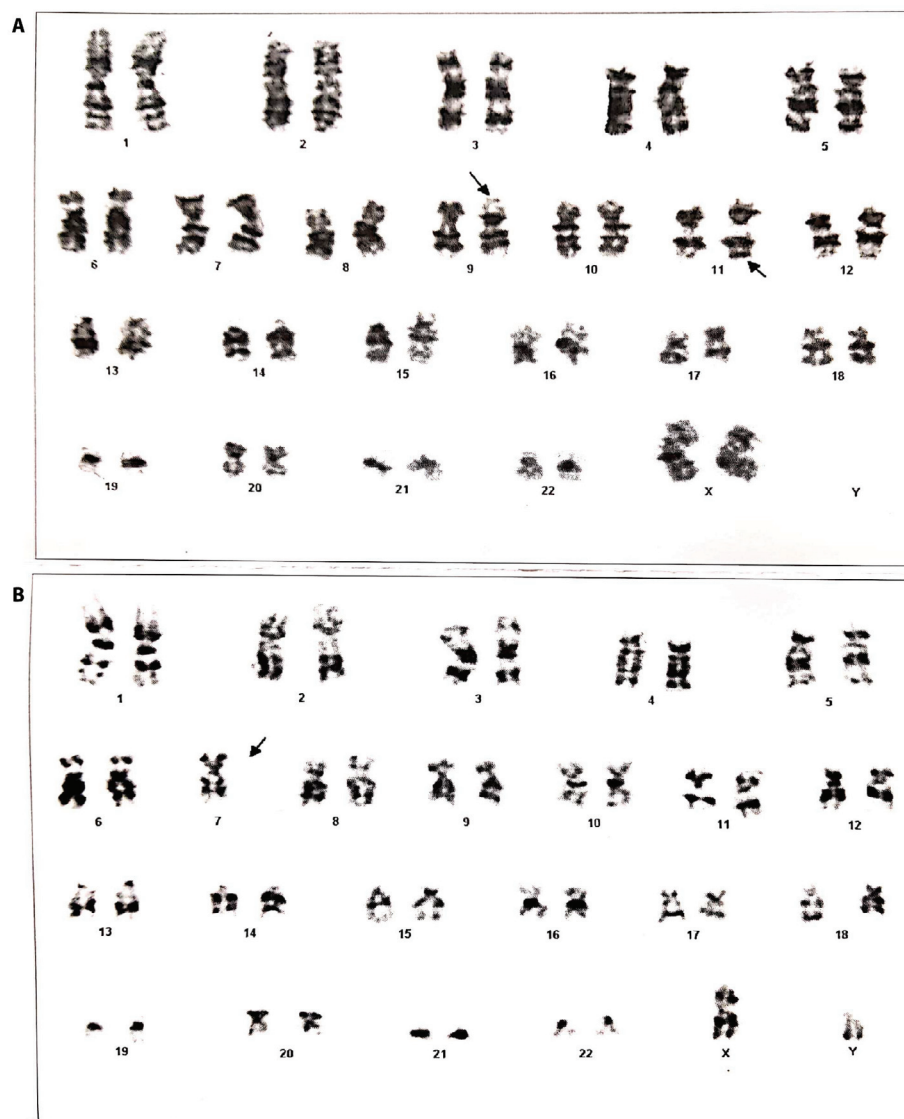 A
1 2 3 4 5
6 7 8 9 10 11 12
13 14 15 16 17 18
19 20 21 22 X Y
B
1 2 3 4 5
6 7 8 9 10 11 12
13 14 15 16 17 18
19 20 21 22 X Y